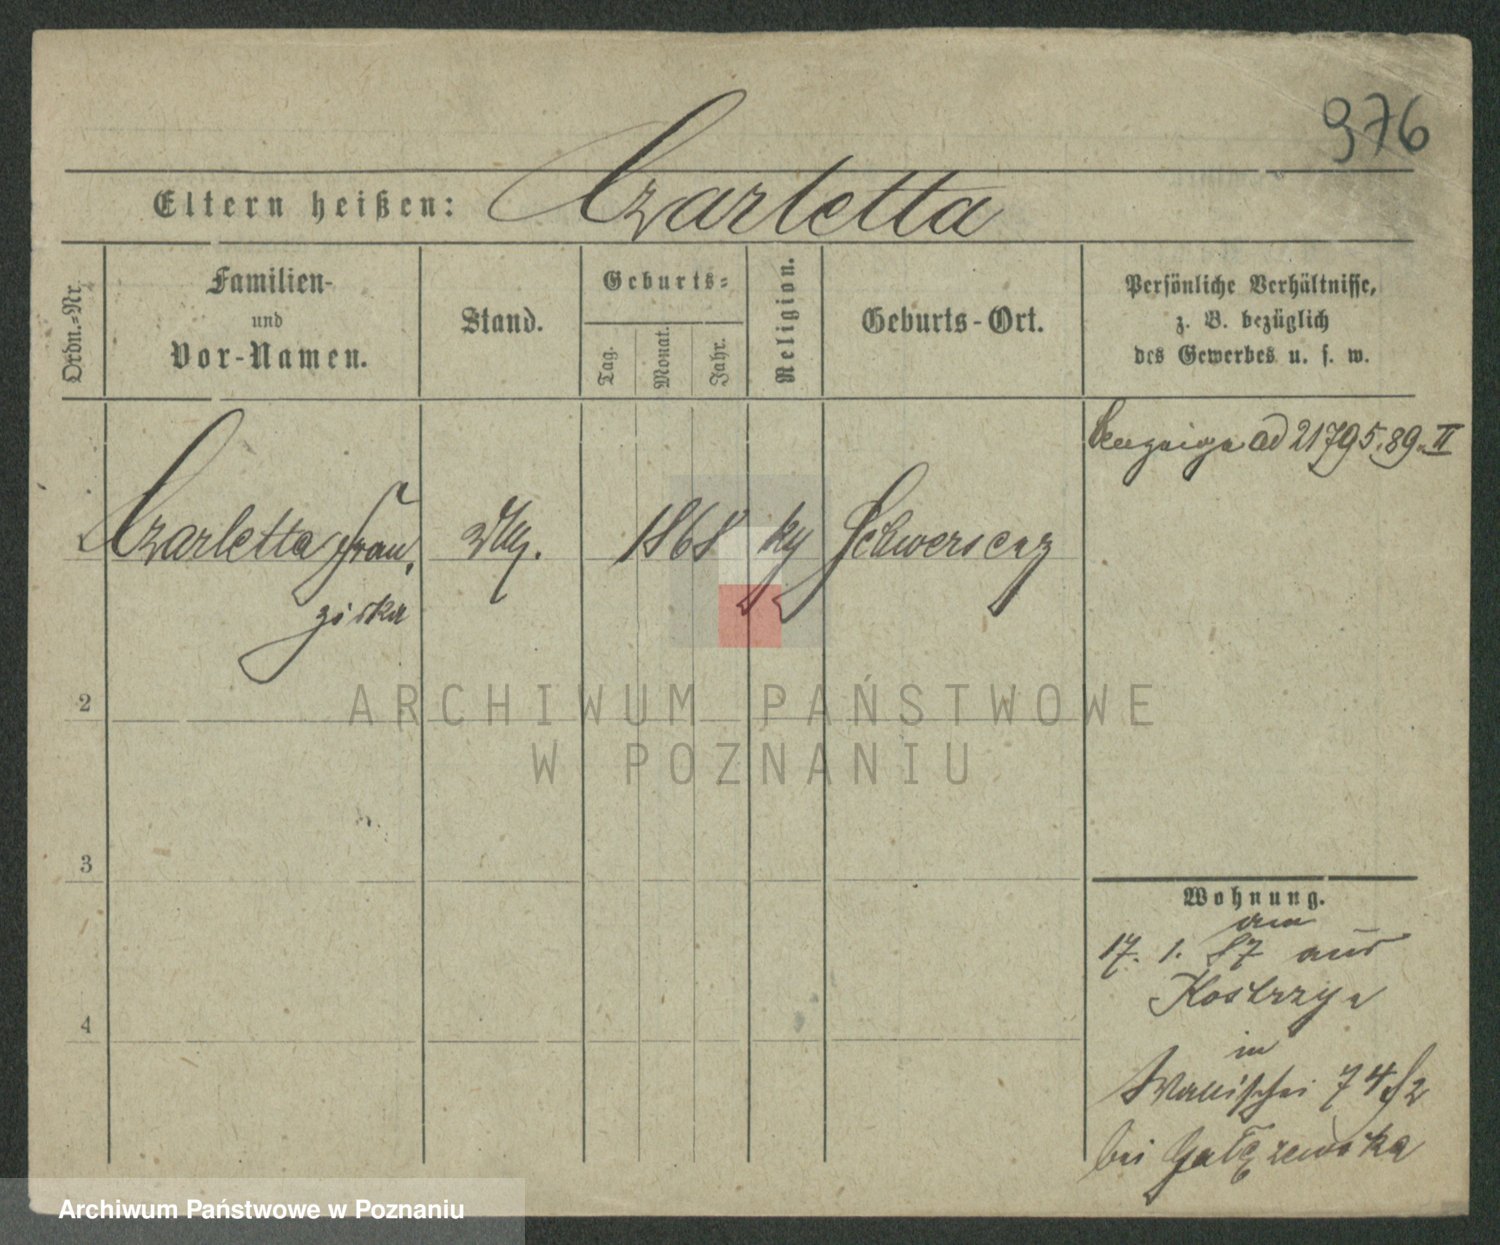 976
Eltern heißen: Czarletta
Ordn.=Nr.
Familien-
und
Vor-Namen.
Stand.
Geburts=
Tag.
Monat.
Jahr.
Religion.
Geburts-Ort.
Persönliche Verhältnisse,
z. B. bezüglich
des Gewerbes u. s. w.
ad 21795.89.II
1
Czarletta Fran,
ziska
1868
Schwersenz
2
ARCHIWUM PAŃSTWOWE
W POZNANIU
3
4
Wohnung.
am
17. 1. 87 aus
Kostrzyn
in
Wallischei 74
bei
Archiwum Państwowe w Poznaniu